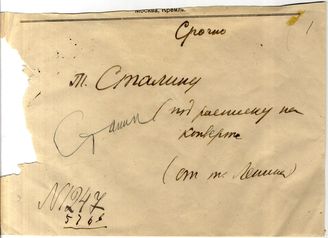 Москва, Кремль.
Срочно
т. Сталину
(под расписку на
конверте
Сталин
(от т. Ленина)
№ 1247